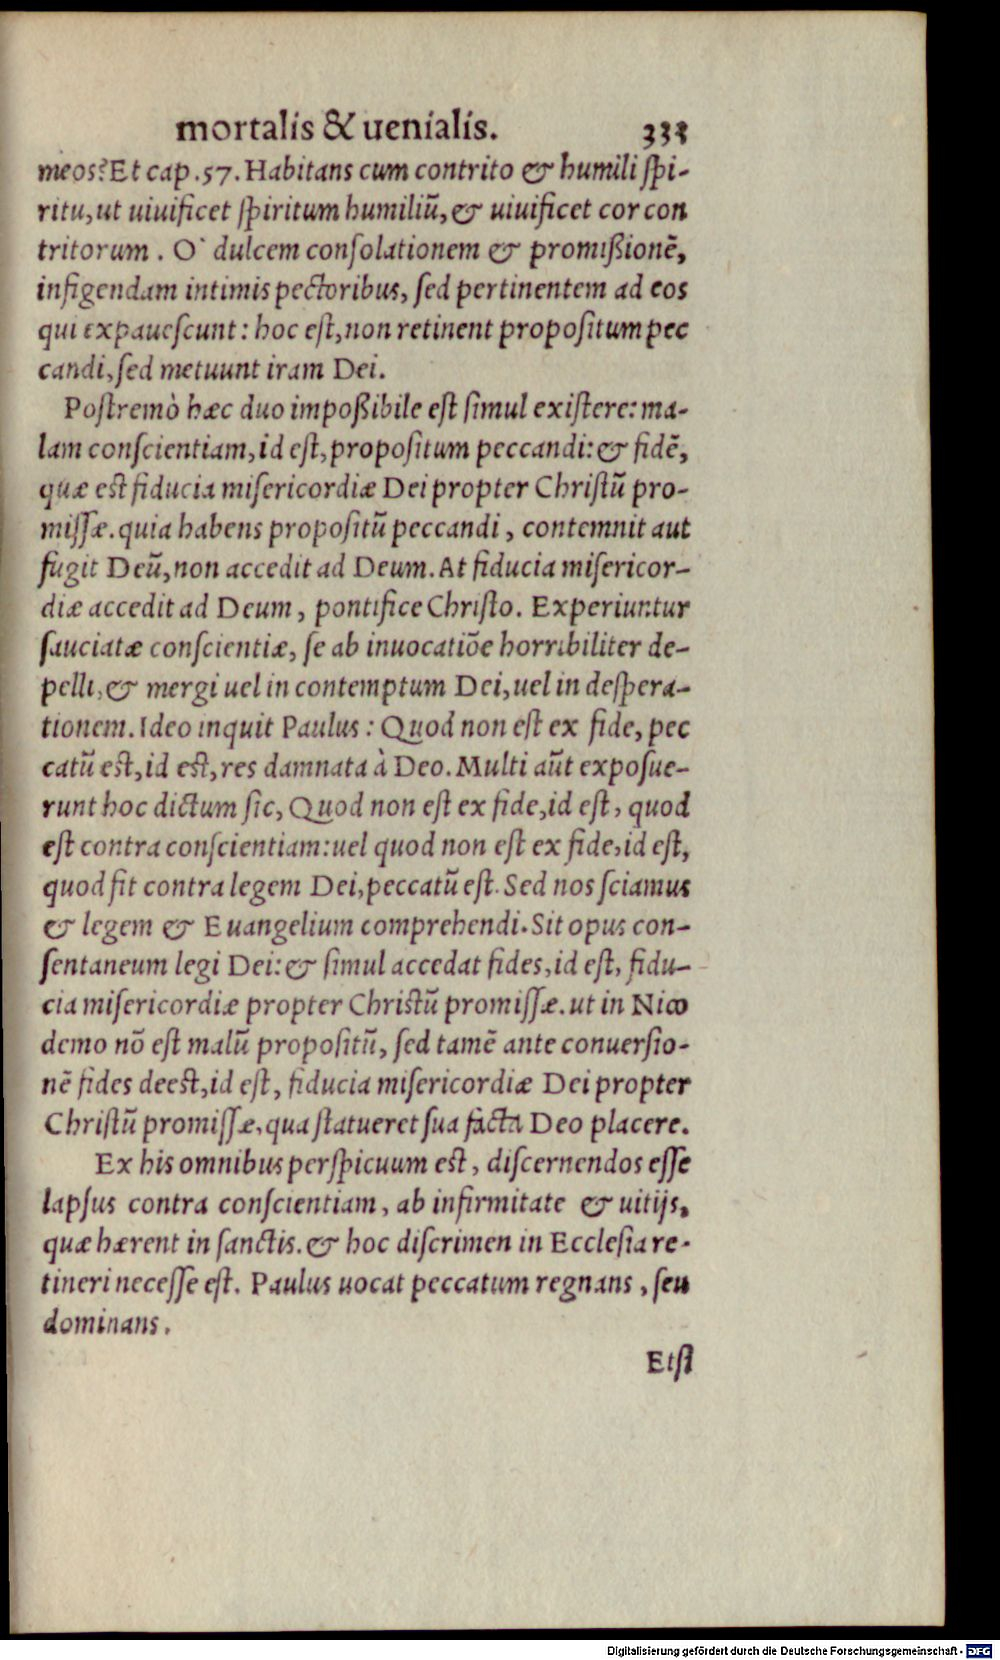 mortalis & uenialis. 333
meos? Et cap. 57. Habitans cum contrito & humili ſpi-
ritu, ut uiuificet ſpiritum humiliū, & uiuificet cor con
tritorum. O` dulcem conſolationem & promißionē,
infigendam intimis pectoribus, ſed pertinentem ad eos
qui expaueſcunt: hoc eſt, non retinent propoſitum pec
candi, ſed metuunt iram Dei.
Poſtremò hæc duo impoßibile eſt ſimul exiſtere: ma-
lam conſcientiam, id eſt, propoſitum peccandi: & fidē,
quæ eſt fiducia miſericordiæ Dei propter Chriſtū pro-
miſſæ. quia habens propoſitū peccandi, contemnit aut
fugit Deū, non accedit ad Deum. At fiducia miſericor-
diæ accedit ad Deum, pontifice Chriſto. Experiuntur
ſauciatæ conſcientiæ, ſe ab inuocatiōe horribiliter de-
pelli, & mergi uel in contemptum Dei, uel in deſpera-
tionem. Ideo inquit Paulus: Quod non eſt ex fide, pec
catū eſt, id eſt, res damnata à Deo. Multi aūt expoſue-
runt hoc dictum ſic, Quod non eſt ex fide, id eſt, quod
eſt contra conſcientiam: uel quod non eſt ex fide, id eſt,
quod fit contra legem Dei, peccatū eſt. Sed nos ſciamus
& legem & Euangelium comprehendi. Sit opus con-
ſentaneum legi Dei: & ſimul accedat fides, id eſt, fidu-
cia miſericordiæ propter Chriſtū promiſſæ. ut in Nico
demo nō eſt malū propoſitū, ſed tamē ante conuerſio-
nē fides deeſt, id eſt, fiducia miſericordiæ Dei propter
Chriſtū promiſſæ, qua ſtatueret ſua facta Deo placere.
Ex his omnibus perſpicuum eſt, diſcernendos eſſe
lapſus contra conſcientiam, ab infirmitate & uitijs,
quæ hærent in ſanctis. & hoc diſcrimen in Eccleſia re-
tineri neceſſe eſt. Paulus uocat peccatum regnans, ſeu
dominans.
Etſi
Digitalisierung gefördert durch die Deutsche Forschungsgemeinschaft - DFG